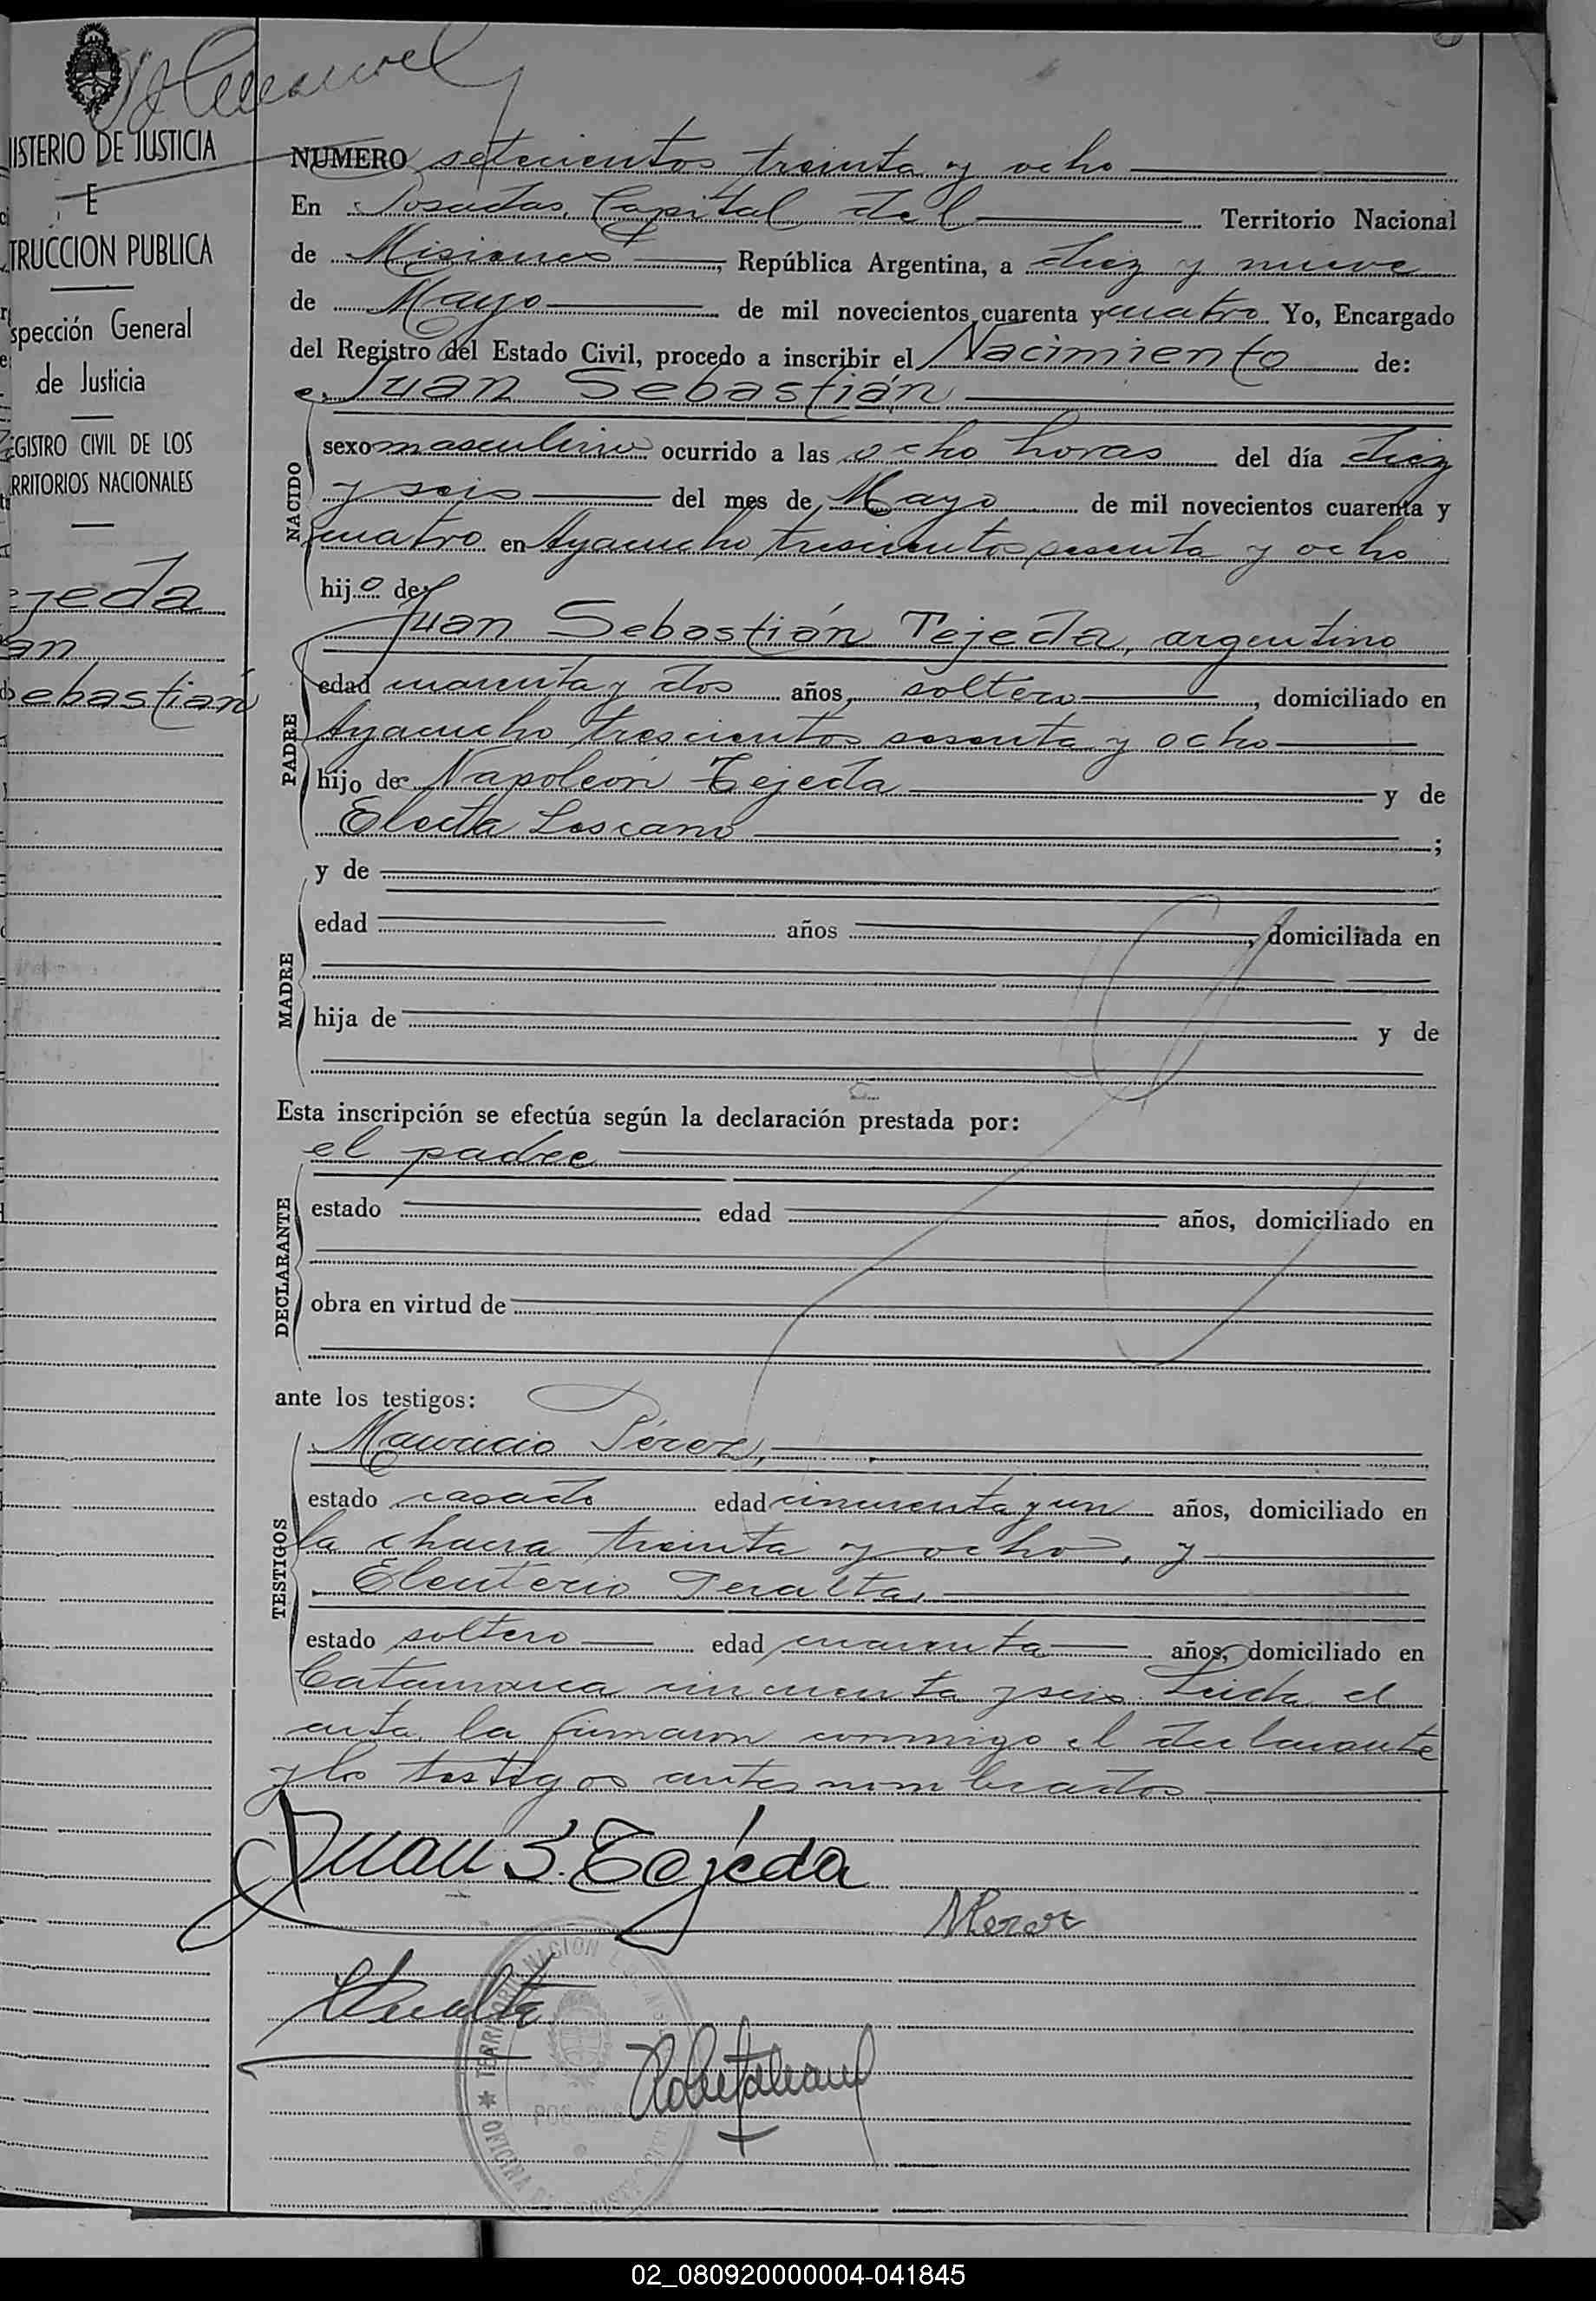 ISTERIO DE JUSTICIA
E
TRUCCION PUBLICA
spección General
de Justicia
GISTRO CIVIL DE LOS
RRITORIOS NACIONALES
ejeda
an
ebastián
NUMERO setecientos treinta y ocho
En Posadas, Capital del Territorio Nacional
de Misiones, República Argentina, a diez y nueve
de Mayo de mil novecientos cuarenta y cuatro Yo, Encargado
del Registro del Estado Civil, procedo a inscribir el Nacimiento de:
Juan Sebastián
NACIDO
sexo masculino ocurrido a las ocho horas del día diez
y seis del mes de Mayo de mil novecientos cuarenta y
cuatro en Ayacucho trescientos sesenta y ocho
hijo de:
PADRE
Juan Sebastián Tejeda, argentino
edad cuarenta y dos años, soltero, domiciliado en
Ayacucho trescientos sesenta y ocho
hijo de Napoleón Tejeda y de
Electa Loscano;
MADRE
y de
edad años, domiciliada en
hija de y de
Esta inscripción se efectúa según la declaración prestada por:
el padre
DECLARANTE
estado edad años, domiciliado en
obra en virtud de
ante los testigos:
TESTIGOS
Mauricio Pérez,
estado casado edad cincuenta y un años, domiciliado en
la chacra treinta y ocho, y
Eleuterio Peralta,
estado soltero edad cuarenta años, domiciliado en
Catamarca cincuenta y seis. Leida el
acta la firmaron conmigo el declarante
y los testigos antes nombrados
Juan S. Tejeda
MPerez
EPeralta
TERRITORIO NACION
OFICINA
02_080920000004-041845